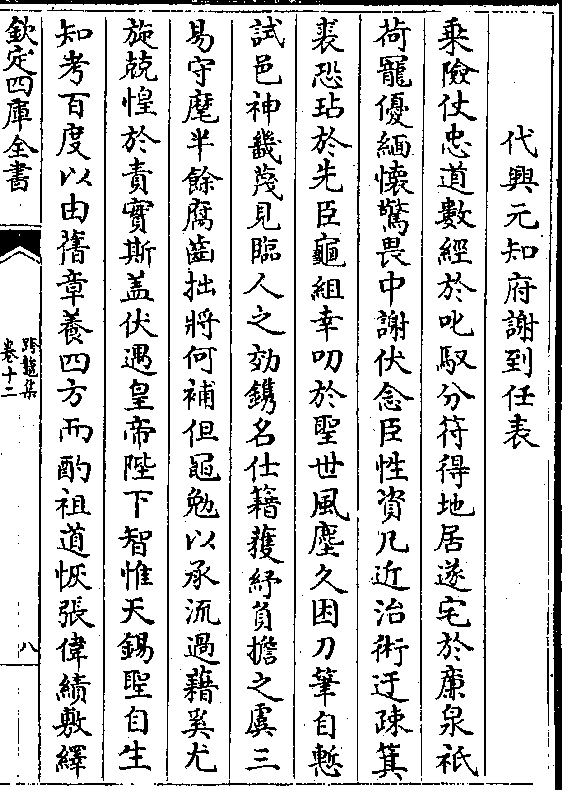 代興元知府謝到任表
乗險仗忠道數經於叱馭分符得地居遂宅於廉泉祗
荷寵優緬懷驚畏中謝伏念臣性資凡近治術迂疎箕
裘恐玷於先臣龜組幸叨於聖世風塵久困刀筆自慙
試邑神畿蔑見臨人之効鐫名仕籍獲紓負擔之虞三
易守麾半餘腐齒拙將何補但黽勉以承流過藉奚尤
旋兢惶於責實斯盖伏遇皇帝陛下智惟天錫聖自生
知考百度以由舊章養四方而酌祖道恢張偉績敷繹
欽定四庫全書
跨鼇集
卷十二
八